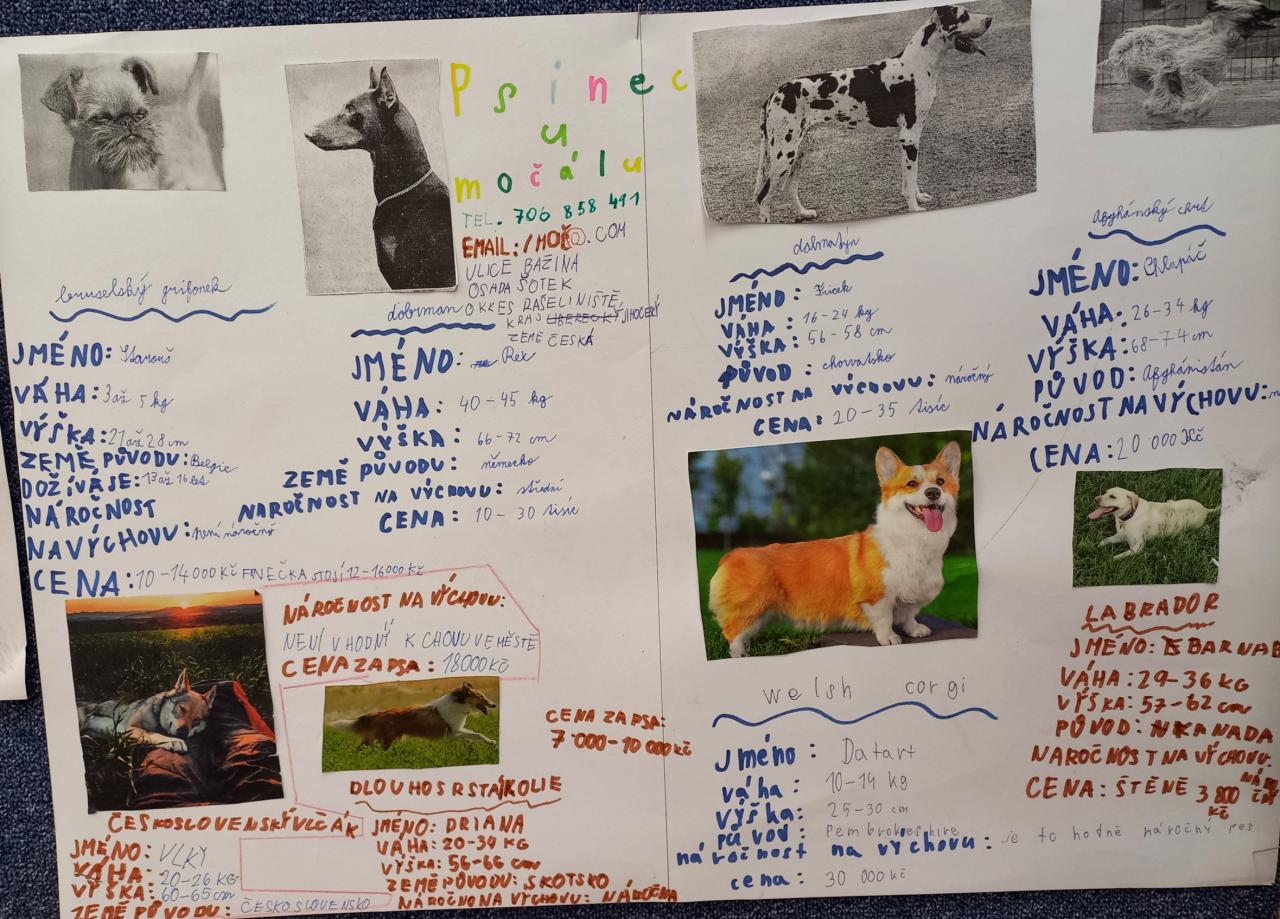 Psinec
u
močálu
TEL. 706 858 491
EMAIL:/MOČ@.COM
ULICE BAŽINA
OSADA ŠOTEK
OKRES RAŠELINIŠTĚ
KRAJ LIBERECKÝ JIHOČESKÝ
ZEMĚ ČESKÁ
bruselský grifonek
JMÉNO: Starouš
VÁHA: 3 až 5 kg
VÝŠKA: 21 až 28 cm
ZEMĚ PŮVODU: Belgie
DOŽÍVÁ SE: 13 až 16 let
NÁROČNOST
NA VÝCHOVU: není náročný
CENA: 10-14000 Kč FENEČKA STOJÍ 12-16000 Kč
dobrman
JMÉNO: Rex
VÁHA: 40-45 kg
VÝŠKA: 66-72 cm
ZEMĚ PŮVODU: německo
NAROČNOST NA VÝCHOVU: střední
CENA: 10-30 tisíc
dalmatýn
JMÉNO: Fricek
VÁHA: 16-24 kg
VÝŠKA: 56-58 cm
PŮVOD: chorvatsko
NÁROČNOST NA VÝCHOVU: náročný
CENA: 20-35 tisíc
Afghánský chrt
JMÉNO: Chlupíč
VÁHA: 26-34 kg
VÝŠKA: 68-74 cm
PŮVOD: Afghánistán
NÁROČNOST NA VÝCHOVU:
CENA: 20 000 Kč
ČESKOSLOVENSKÝ VLČÁK
JMÉNO: VLKY
VÁHA: 20-26 KG
VÝŠKA: 60-65 cm
ZEMĚ PŮVODU: ČESKOSLOVENSKO
NÁROČNOST NA VÝCHOVU:
NENÍ VHODNÝ K CHOVU VE MĚSTĚ
CENA ZA PSA: 18000 Kč
DLOUHOSRSTÁ KOLIE
JMÉNO: DRIANA
VÁHA: 20-34 KG
VÝŠKA: 56-66 cm
ZEMĚ PŮVODU: SKOTSKO
NÁROČNO NA VÝCHOVU: NÁROČNA
CENA ZA PSA:
7 000-10 000 Kč
welsh corgi
Jméno: Datart
váha: 10-14 kg
Výška: 25-30 cm
původ: Pembrokeshire
náročnost na výchovu: je to hodně náročný pes
cena: 30 000 Kč
LABRADOR
JMÉNO: BARNAB
VÁHA: 29-36 KG
VÝŠKA: 57-62 cm
PŮVOD: KANADA
NAROČNOST NA VÝCHOVU:
CENA: ŠTĚNĚ 3 800 Kč